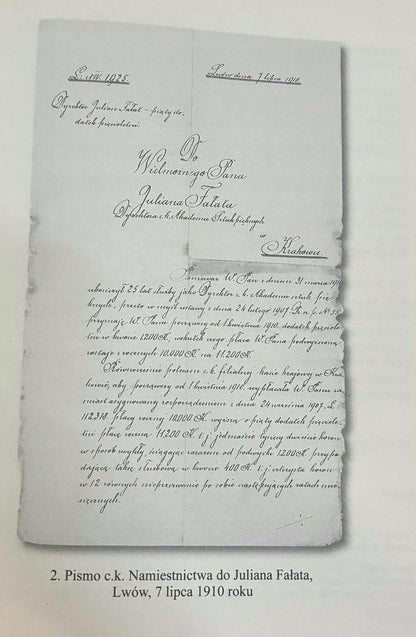 L. XIV. 1925.
Lwów dnia 7 lipca 1910.
Dyrektor Julian Fałat – piąty do-
datek pięcioletni.
Do
Wielmożnego Pana
Juliana Fałata
Dyrektora c. k. Akademii Sztuk pięknych
w
Krakowie.
Ponieważ W. Pan z dniem 31 marca 1910
ukończył 25 lat służby jako Dyrektor c. k. Akademii sztuk pię-
knych, przeto w myśl ustawy z dnia 24 lutego 1907. R. u. p. № 55
przyznaję W. Panu począwszy od 1 kwietnia 1910. dodatek pięciole-
tni w kwocie 1200 K, wskutek czego płaca W. Pana podwyższona
zostaje z rocznych 10.000 K. na 11.200 K.
Równocześnie polecam c. k. filialnej kasie krajowej w Kra-
kowie, aby począwszy od 1 kwietnia 1910. wypłacała W. Panu za-
miast asygnowanej rozporządzeniem z dnia 24 września 1907. L.
112318. płacy rocznej 10.000 K. wyższą o piąty dodatek pięciole-
tni płacę roczną 11.200 K. t. j. jedenaście tysięcy dwieście koron
w sposób zwykły, ściągając zarazem od podwyżki 1200 K. przypa-
dającą taksę służbową w kwocie 400 K. t. j. czterysta koron
w 12 równych nieprzerwanie po sobie następujących ratach mie-
sięcznych.
2. Pismo c.k. Namiestnictwa do Juliana Fałata,
Lwów, 7 lipca 1910 roku